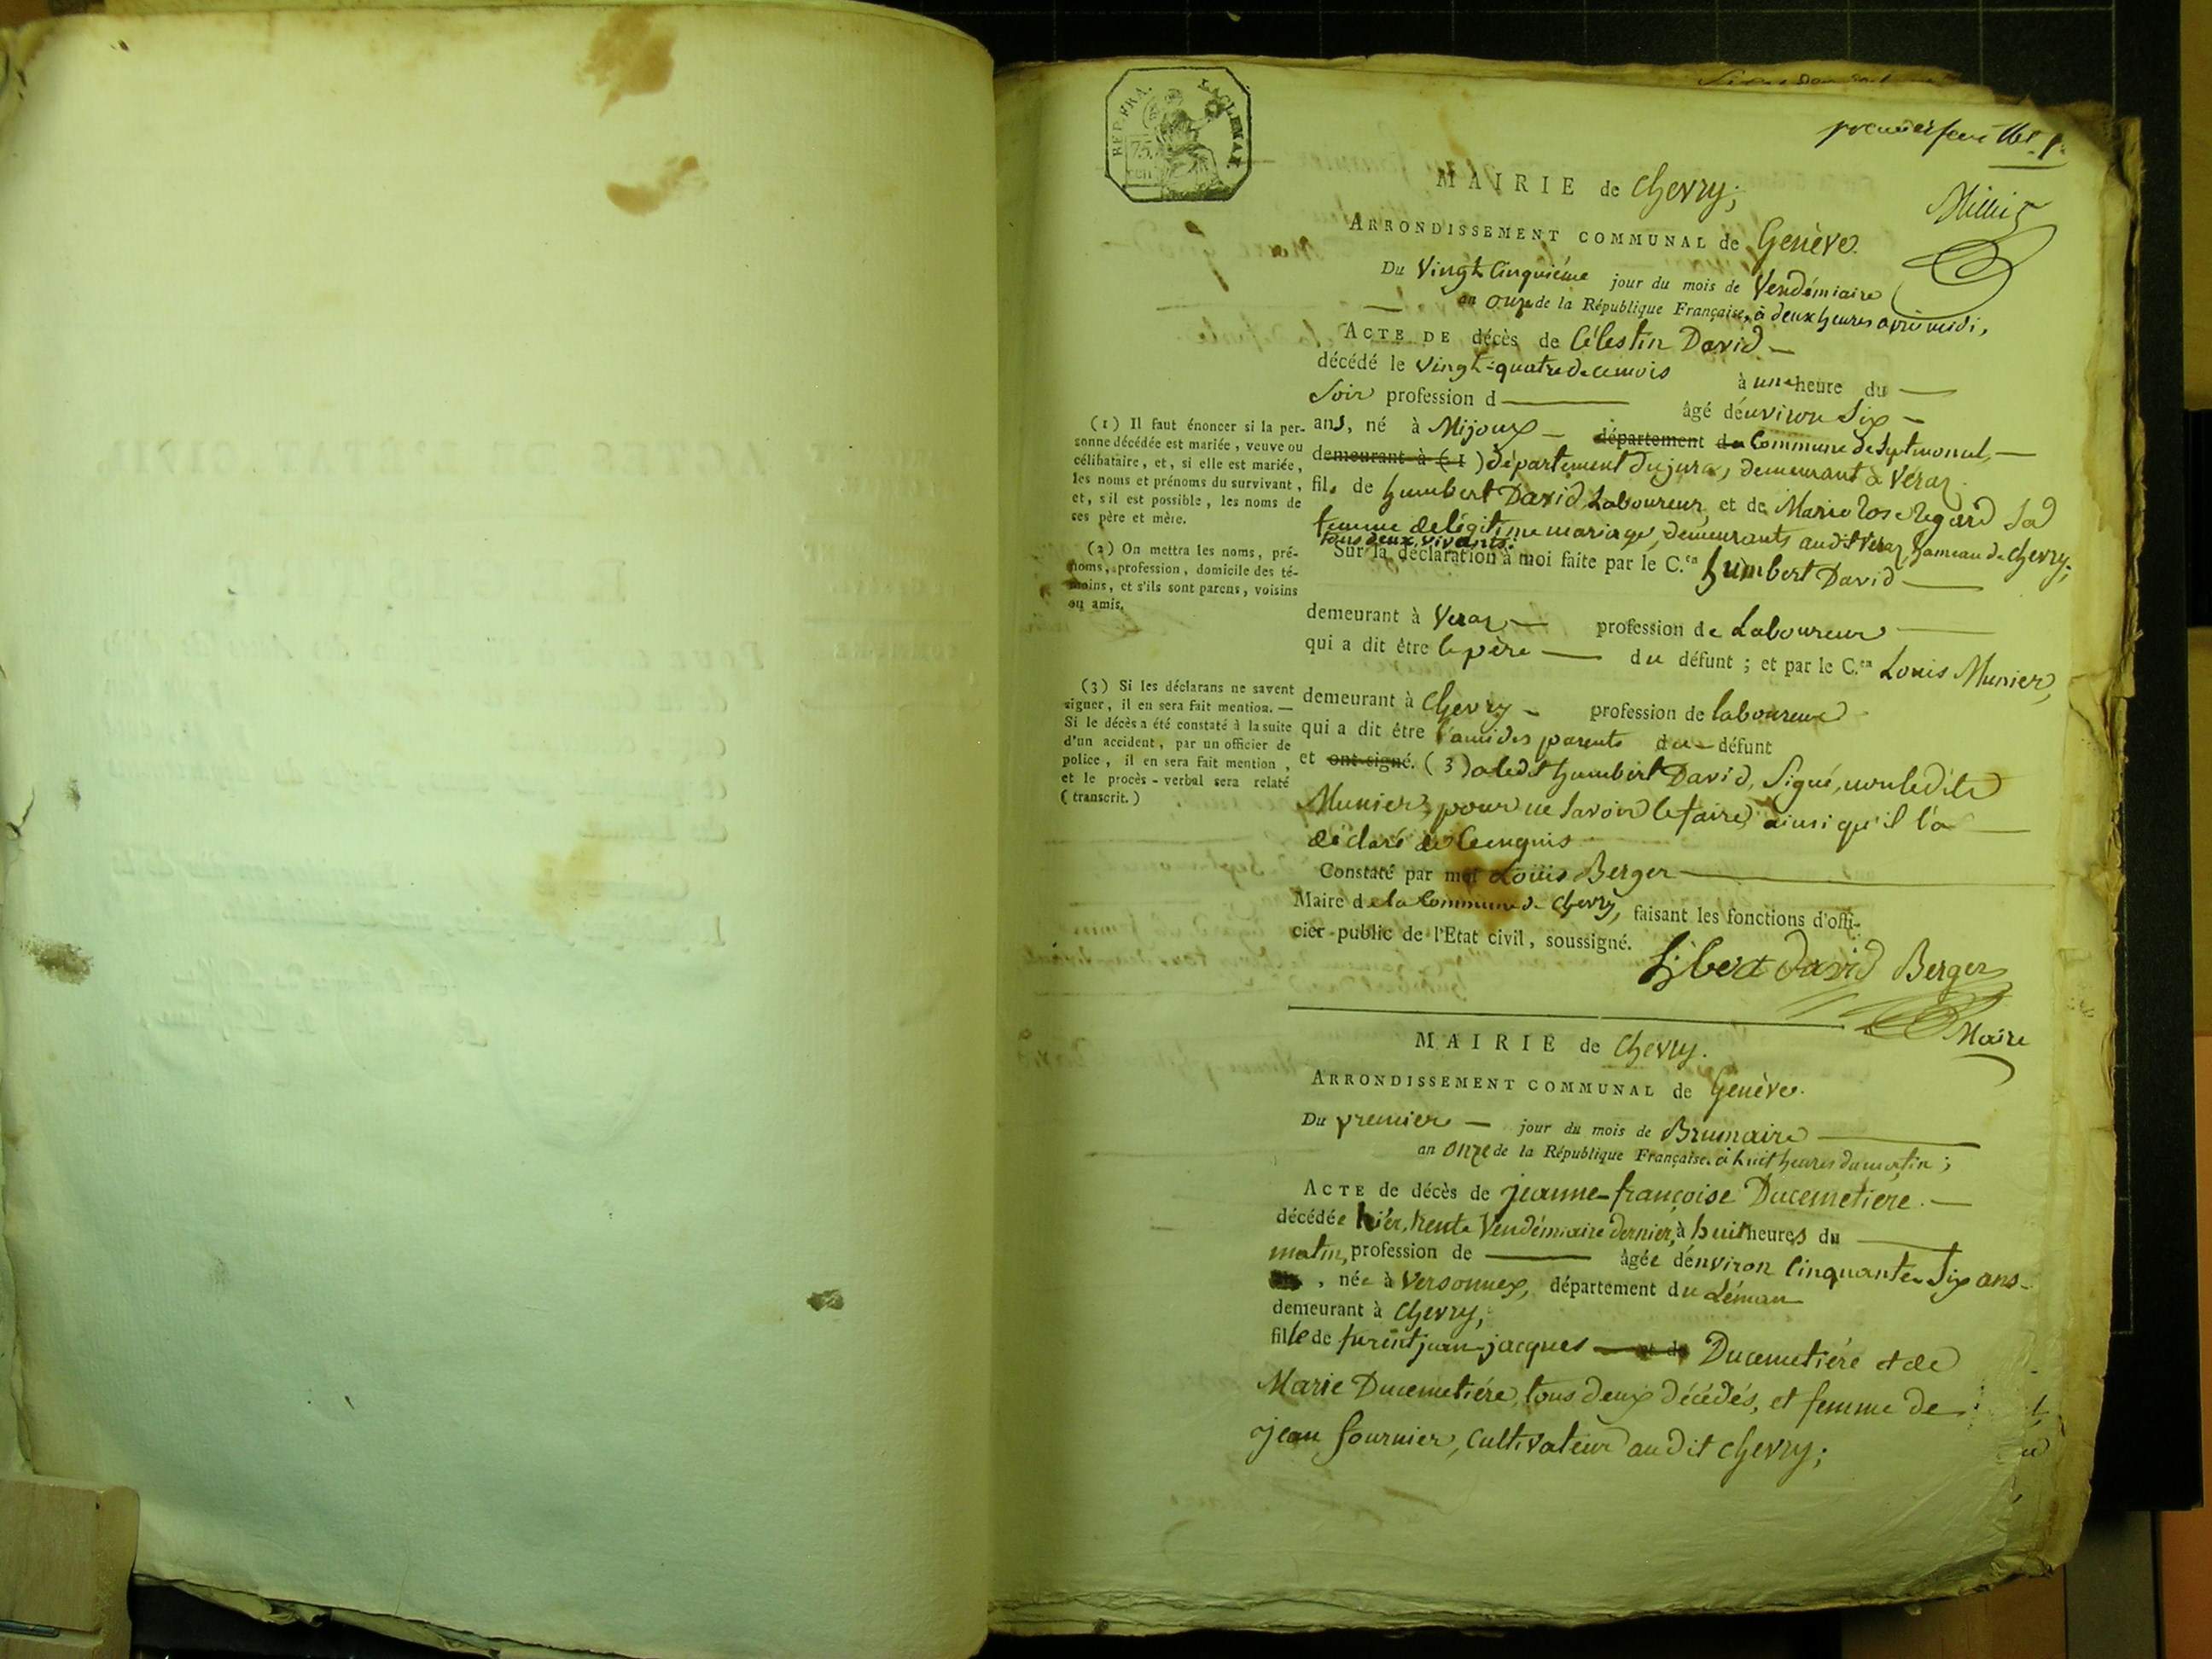 premier feuillet
REP. FRA.
75.
cen
Millet
MAIRIE de Chevry;
ARRONDISSEMENT COMMUNAL de Genève.
Du Vingt Cinquiéme jour du mois de Vendémiaire
an onze de la République Française, à deux heures après midi,
ACTE DE décès de Célestin David —
décédé le vingt-quatre de ce mois à une heure du —
Soir profession d— âgé d'environ Six —
ans, né à Mijoux — département du Commune de Septmoncel, —
demeurant à (1) département du jura, demeurant à Véraz.
fils de humbert David, Laboureur, et de Marie Rose Regard Sa
femme de légitime mariage, demeurants audit Veraz, hameau de Chevry;
tous deux vivants.
Sur la déclaration à moi faite par le C.en humbert David —
demeurant à Veraz — profession de Laboureur —
qui a dit être le père — du défunt ; et par le C.en Louis Munier,
demeurant à Chevry — profession de laboureur
qui a dit être l'ami des parents du défunt
et ont signé. (3) a ledt humbert David, Signé, non ledit
Munier, pour ne Savoir le faire ainsi qu'il l'a —
déclaré de ce enquis
Constaté par moi Louis Berger —
Maire de la Commune de Chevry, faisant les fonctions d'offi-
cier public de l'Etat civil, soussigné.
David Berger
Maire
(1) Il faut énoncer si la per-
sonne décédée est mariée, veuve ou
célibataire, et, si elle est mariée,
les noms et prénoms du survivant,
et, s'il est possible, les noms de
ses père et mère.
(2) On mettra les noms, pré-
noms, profession, domicile des té-
moins, et s'ils sont parens, voisins
ou amis.
(3) Si les déclarans ne savent
signer, il en sera fait mention. —
Si le décès a été constaté à la suite
d'un accident, par un officier de
police, il en sera fait mention,
et le procès-verbal sera relaté
(transcrit.)
MAIRIE de Chevry.
ARRONDISSEMENT COMMUNAL de Genève.
Du premier — jour du mois de Brumaire —
an onze de la République Française. à huit heures du matin;
ACTE de décès de jeanne-françoise Ducemetiére. —
décédée hier, trente Vendémiaire dernier, à huit heures du —
matin, profession de — âgée d'environ Cinquante-Six ans —
, née à Versonnex, département du Léman
demeurant à Chevry,
fille de furent jean-jacques — et de Ducemetiére et de
Marie Ducemetiére, tous deux décédés, et femme de
jean fournier, Cultivateur audit Chevry;